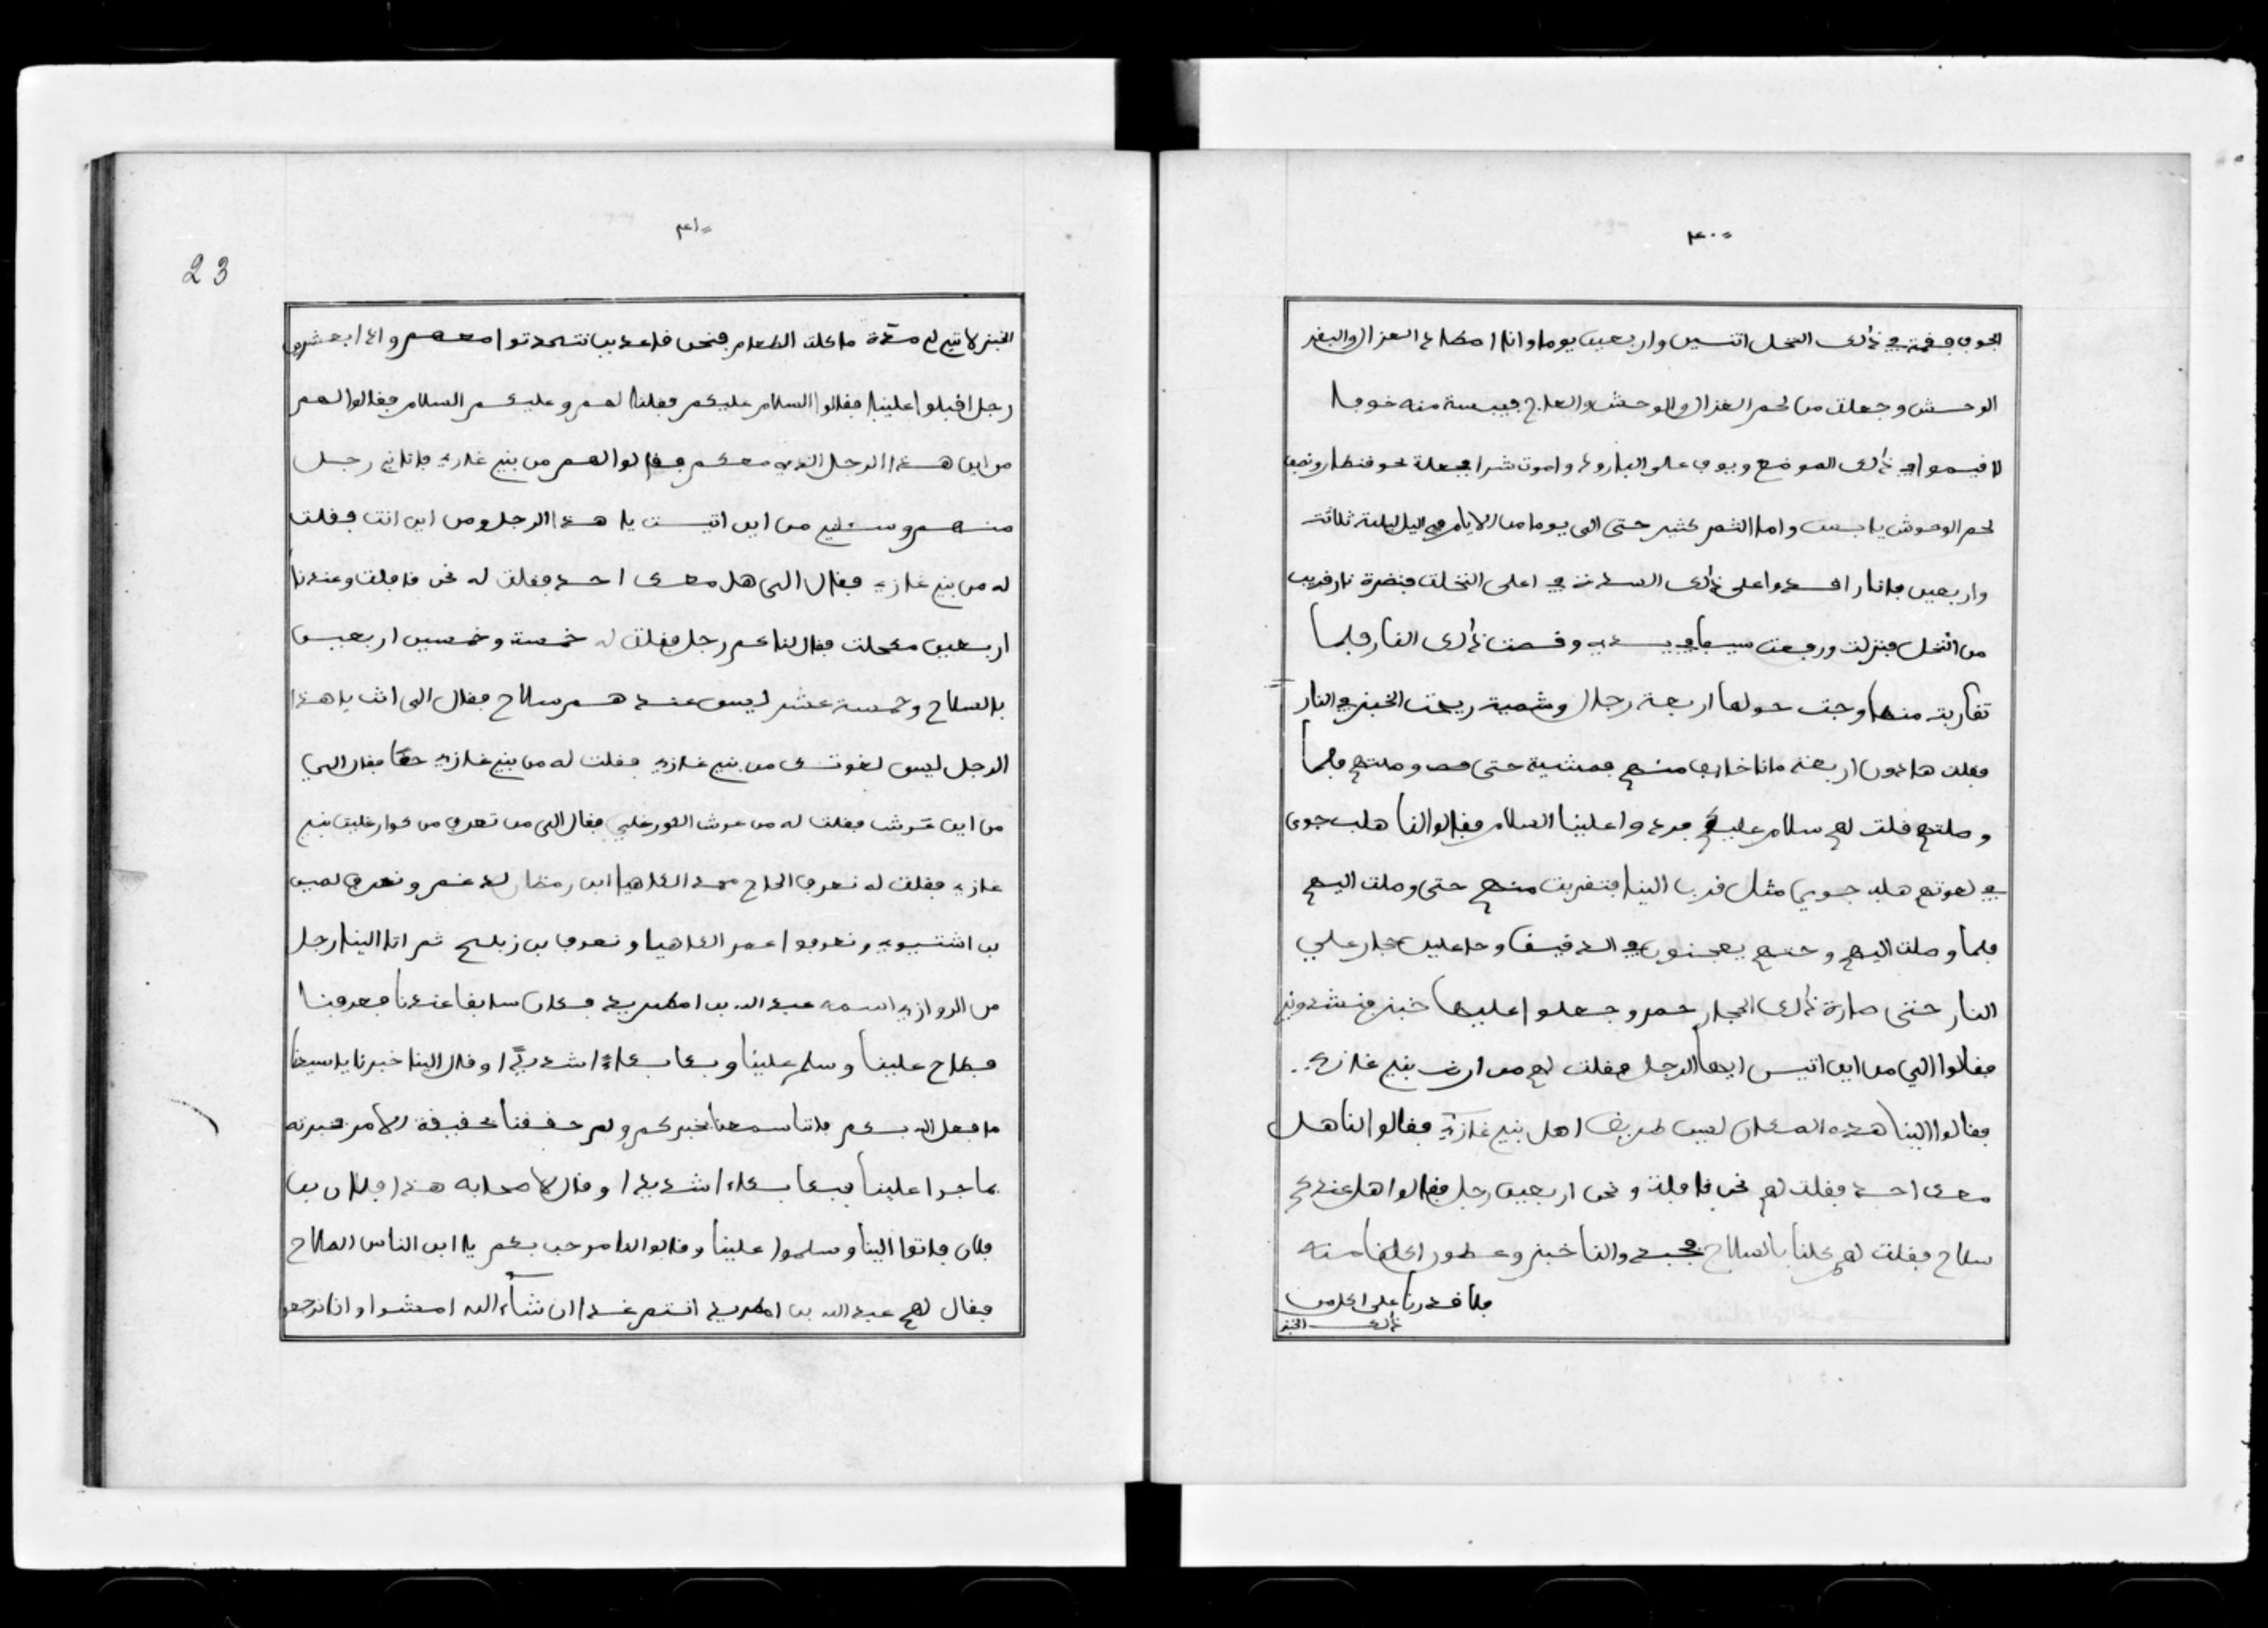 ٤٠
الجوف فقمة في ذالك النخل اتنين واربعين يوما وانا اصطاد الغزال والبقر
الوحش وجعلت من لحم الغزال والوحش والعلاج فيبسة منه خوفا
لا فيموا في ذالك الموضع ويوفي على البارود واموت شرا فجعلة نحو قنطار ونصف
لحم الوحوش يابست واما الثمر كثير حتى الى يوما من الايام في اليل ليلة ثلاثة
واربعين فانا راقد واعلى ذالك السدة في اعلى النخلت فنضرة نار قريب
من النخل فنزلت ورفعت سيفا في يدي وقصت ذالك النار فلما
تقاربت منها وجت حولها اربعة رجال وشمية ريحت الخبز في النار
فقلت هاذون اربعة مانا خايف منهم فمشية حتى وصلتهم فلما
وصلتهم قلت لهم سلام عليكم فردوا علينا السلام فقالوا لنا هلب جوى
في لغوتهم هلب جوى مثل قرب الينا فتقربت منهم حتى وصلت اليهم
فلما وصلت اليهم وجتهم يعجنون في الدقيق وحاعلين حجار علي
النار حتى صارة ذالك الحجار حمر وجعلوا عليها خبز فنشدوني
فقالوا الي من اين اتيس ايها الرجل فقلت لهم من ارض بني غازي
فقالوا الينا هذه المكان ليس طريق اهل بني غازي فقالوا لنا هل
معك احد فقلت لهم نحن قافلة ونحن اربعين رجل فقالوا هل عندكم
سلاح فقلت لهم كلنا بالسلاح فجبدوا لنا خبز وعطور اكلنا منه
فلا قدرنا على اكل من
ذالك الخبز
٤١
23
الخبز لا تبع لي مدة ما كلت الطعام فنحن قاعدين نتحدتوا معهم واذا بعشرين
رجل اقبلوا علينا فقالوا السلام عليكم فقلنا لهم وعليكم السلام فقالوا لهم
من اين هذا الرجل الذي معكم فقالوا لهم من بني غازي فاتاني رجل
منهم وسئلني من اين اتيت يا هذا الرجل ومن اين انت فقلت
له من بني غازي فقال الى هل معك احد فقلت له نحن قافلت وعندنا
اربعين مكحلت فقال لنا كم رجل فقلت له خمسة وخمسين اربعين
بالسلاح وخمسة عشر ليس عندهم سلاح فقال الى انت يا هذا
الرجل ليس لغوتك من بني غازي فقلت له من بني غازي حقا فقال الي
من اين عرش فقلت له من عرش الغور غلي فقال الى من تعرف من كوارغليت بني
غازي فقلت له نعرف الحاج محمد الكاهيا ابن رمضان لدغم ونعرف لمين
بن اشتيوي ونعرفوا عمر الكاهيا ونعرف بن زبلح ثم اتا الينا رجل
من الزوازي اسمه عبد الله بن امكريد فكان سابقا عندنا فعرفنا
فطاح علينا وسلم علينا وبكا بكاءً شديدًا وقال الينا خبرنا يا سيدنا
ما فعل الله بكم فاننا سمعنا بخبركم ولم حققنا بحقيقة الامر فخبرته
بما جرا علينا فبكا بكاء شديدا وقال لاصحابه هذا فلان بن
فلان فاتوا الينا وسلموا علينا وقالوا لنا مرحب بكم يا ابن الناس الملاح
فقال لهم عبد الله بن امكريد انتم غدا ان شاء الله امشوا وانا نرجعوا